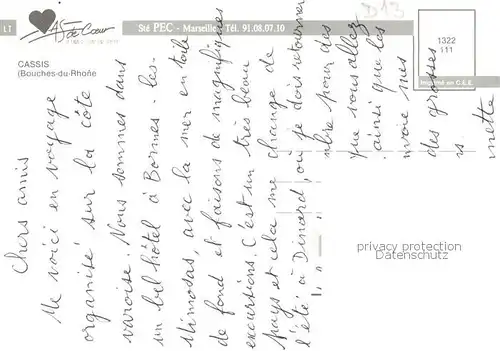 LT
As de Cœur
Sté PEC - Marseille Tél. 91.08.07.10
D13
CASSIS
(Bouches-du-Rhône
1322
111
Imprimé en C.E.E.
Chers amis
Me voici en voyage
organisé sur la côte
varoise. Nous sommes dans
un bel hôtel à Bormes-les-
Mimosas, avec la mer en toile
de fond et faisons de magnifiques
excursions. C'est un très beau
pays et cela me change de
l'été à Dinard, où je dois retourner
bre pour des
que vous allez
ainsi que les
mes
des grosses
s.
nette
privacy protection
Datenschutz